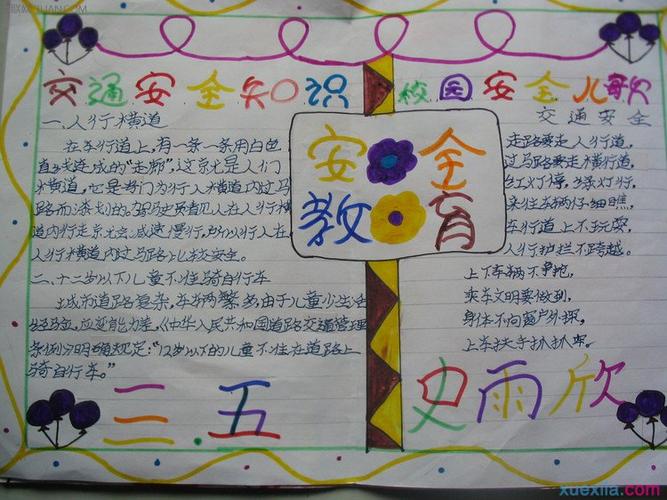 交通安全知识
一、人行横道
在车行道上,有一条一条用白色
直线连成的“走廊”,这就是人们
横道,它是专门为行人横道内过马
路而漆划的。驾马史员看见人在人行横
道内行走就会减速慢行,所以行人在
人行横道内过马路比较安全。
二、十二岁以下儿童不准骑自行车
城市道路复杂,车辆繁多由于儿童少生活
经马佥,应变能力差,《中华人民共和国道路交通管理
条例》明确规定:“12岁以下的儿童不准在道路上
骑自行车。”
三.五
安全
教育
校园安全儿歌
交通安全
走路要走人行道,
过马路要走横行道,
红灯停,绿灯行,
来往车辆仔细瞧,
车行道上不玩耍,
人行护拦不跨越。
上下车辆不争抢,
乘车文明要做到,
身体不向窗户外探,
上车扶手扒扒牢。
史雨欣
xuexila.com